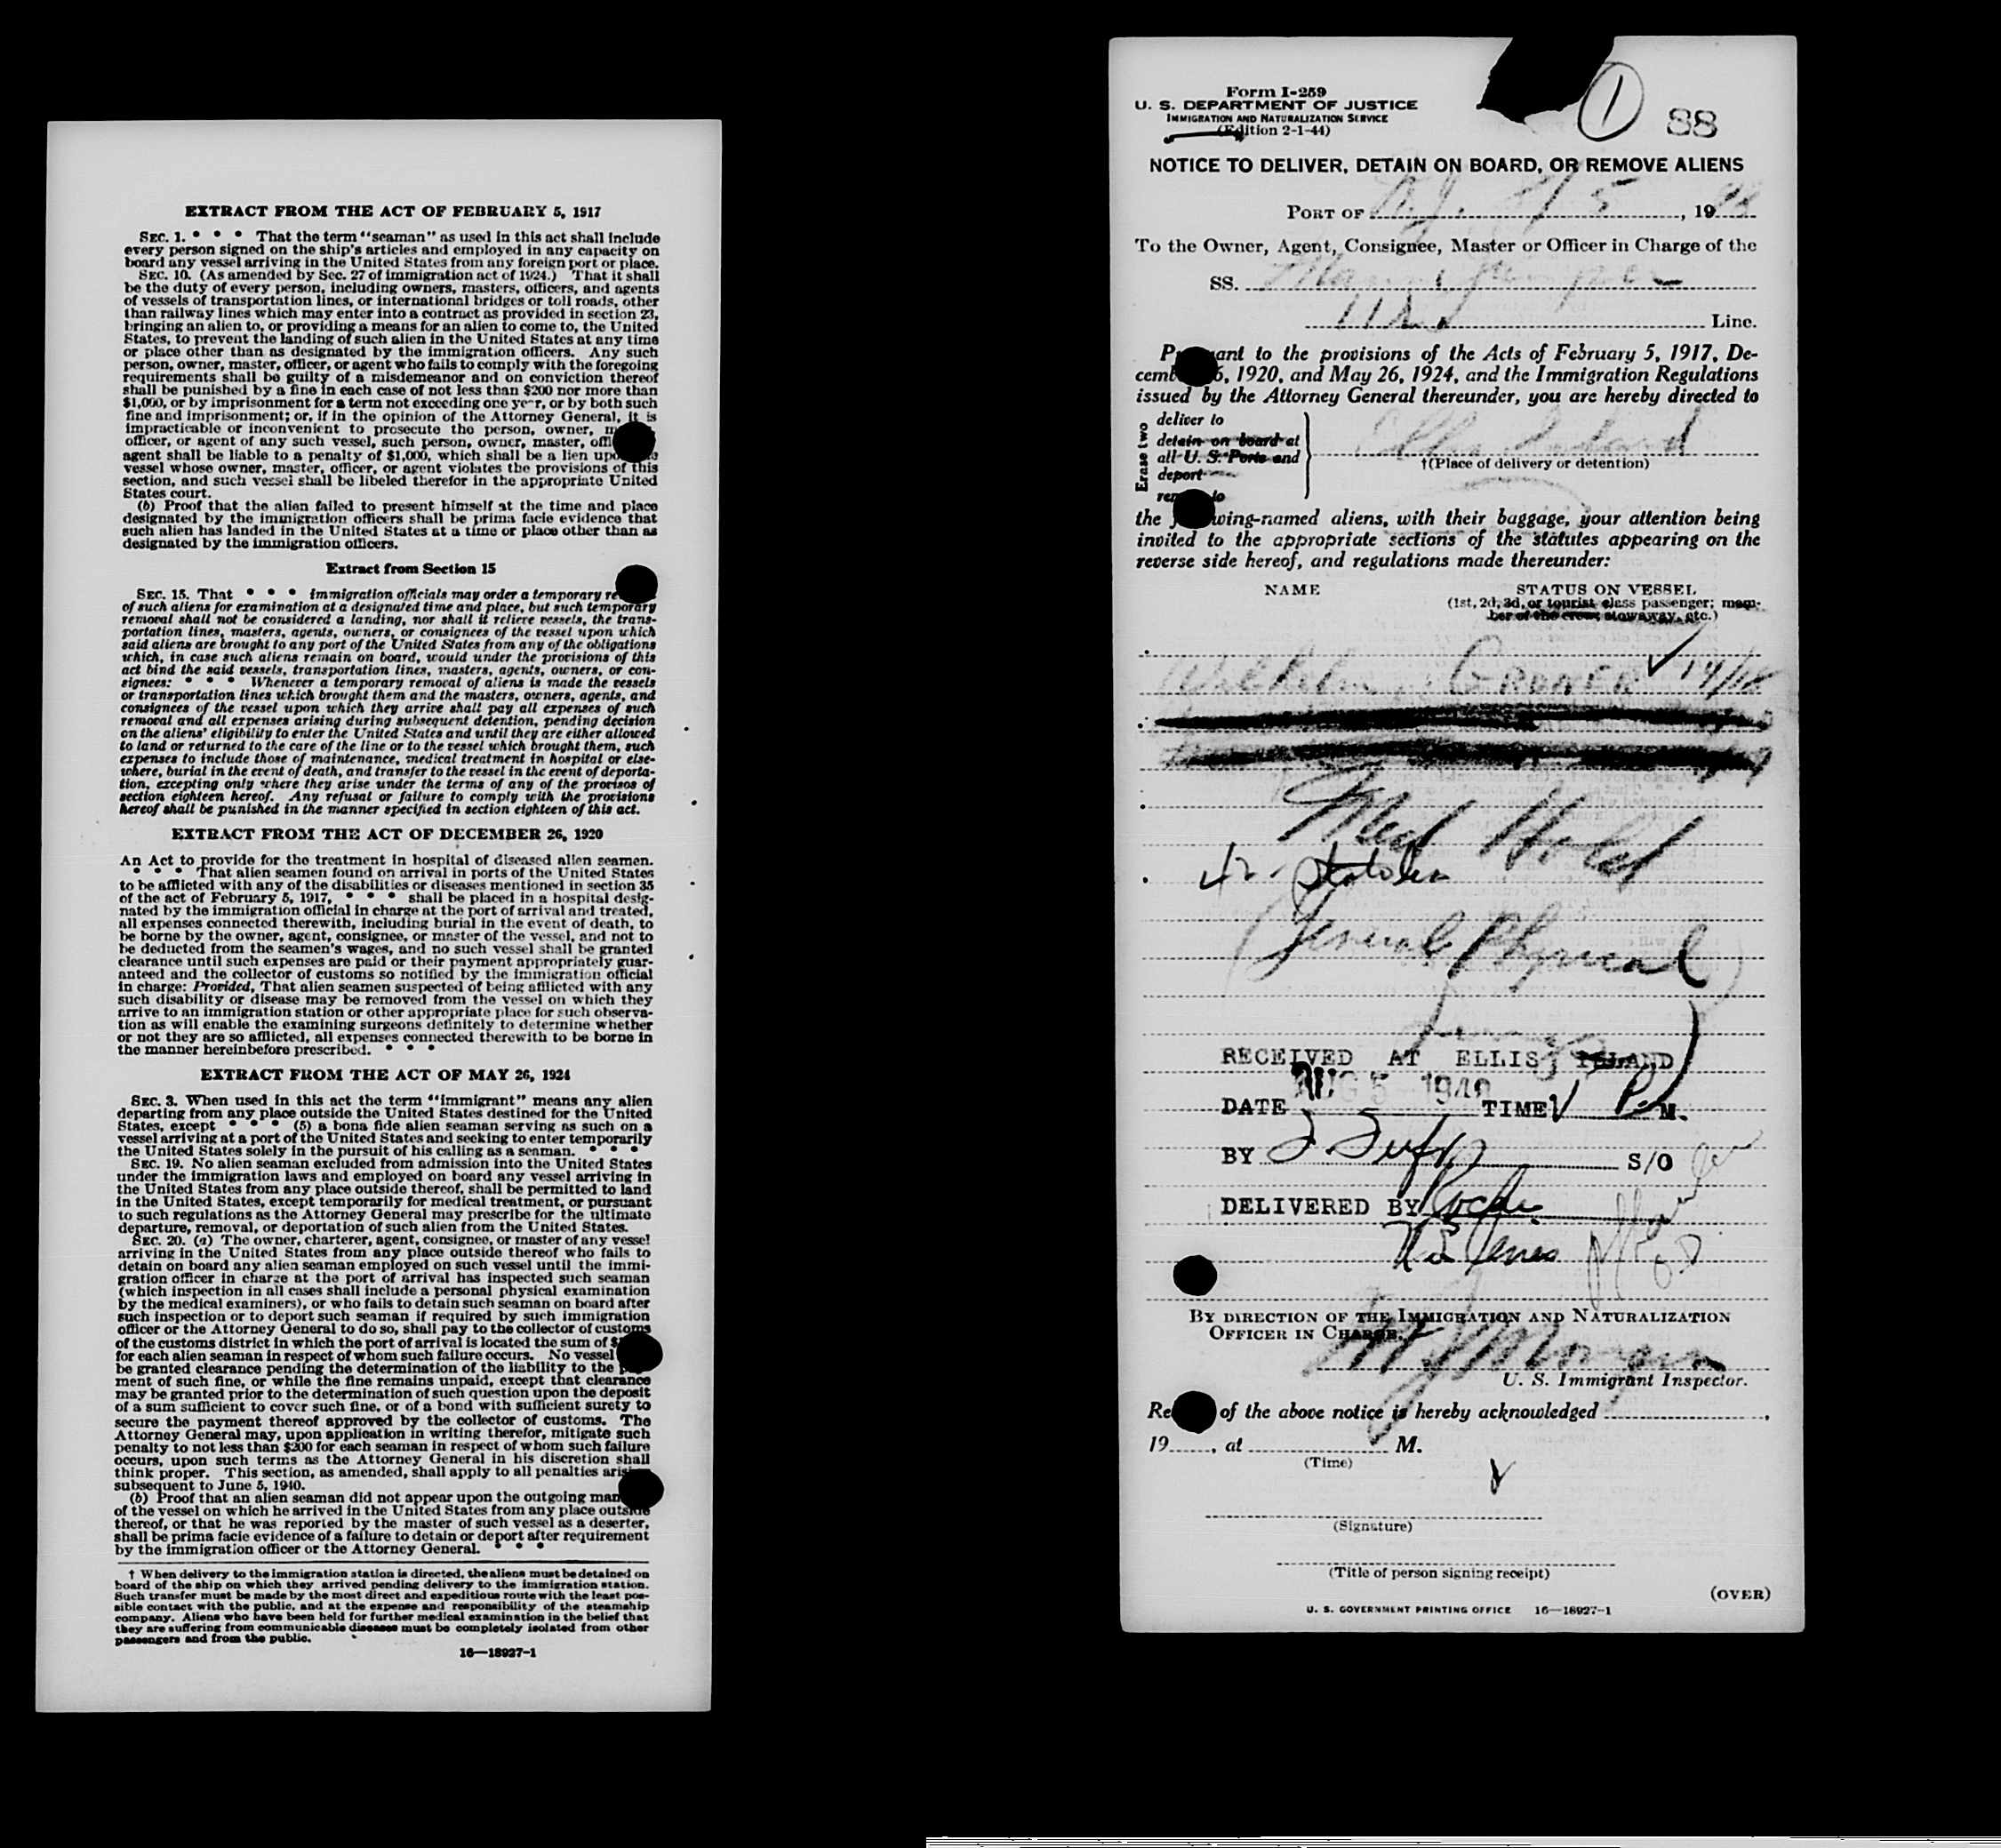 EXTRACT FROM THE ACT OF FEBRUARY 5, 1917
SEC. 1. * * * That the term "seaman" as used in this act shall include
every person signed on the ship's articles and employed in any capacity on
board any vessel arriving in the United States from any foreign port or place.
SEC. 10. (As amended by Sec. 27 of immigration act of 1924.) That it shall
be the duty of every person, including owners, masters, officers, and agents
of vessels of transportation lines, or international bridges or toll roads, other
than railway lines which may enter into a contract as provided in section 23,
bringing an alien to, or providing a means for an alien to come to, the United
States, to prevent the landing of such alien in the United States at any time
or place other than as designated by the immigration officers. Any such
person, owner, master, officer, or agent who fails to comply with the foregoing
requirements shall be guilty of a misdemeanor and on conviction thereof
shall be punished by a fine in each case of not less than $200 nor more than
$1,000, or by imprisonment for a term not exceeding one year, or by both such
fine and imprisonment; or, if in the opinion of the Attorney General, it is
impracticable or inconvenient to prosecute the person, owner,
officer, or agent of any such vessel, such person, owner, master,
agent shall be liable to a penalty of $1,000, which shall be a lien
vessel whose owner, master, officer, or agent violates the provisions of this
section, and such vessel shall be libeled therefor in the appropriate United
States court.
(b) Proof that the alien failed to present himself at the time and place
designated by the immigration officers shall be prima facie evidence that
such alien has landed in the United States at a time or place other than as
designated by the immigration officers.
Extract from Section 15
SEC. 15. That * * * immigration officials may order a temporary
of such aliens for examination at a designated time and place, but such temporary
removal shall not be considered a landing, nor shall it relieve vessels, the trans-
portation lines, masters, agents, owners, or consignees of the vessel upon which
said aliens are brought to any port of the United States from any of the obligations
which, in case such aliens remain on board, would under the provisions of this
act bind the said vessels, transportation lines, masters, agents, owners, or con-
signees: * * * Whenever a temporary removal of aliens is made the vessels
or transportation lines which brought them and the masters, owners, agents, and
consignees of the vessel upon which they arrive shall pay all expenses of such
removal and all expenses arising during subsequent detention, pending decision
on the aliens' eligibility to enter the United States and until they are either allowed
to land or returned to the care of the line or to the vessel which brought them, such
expenses to include those of maintenance, medical treatment in hospital or else-
where, burial in the event of death, and transfer to the vessel in the event of deporta-
tion, excepting only where they arise under the terms of any of the provisos of
section eighteen hereof. Any refusal or failure to comply with the provisions
hereof shall be punished in the manner specified in section eighteen of this act.
EXTRACT FROM THE ACT OF DECEMBER 26, 1920
An Act to provide for the treatment in hospital of diseased alien seamen.
* * * That alien seamen found on arrival in ports of the United States
to be afflicted with any of the disabilities or diseases mentioned in section 35
of the act of February 5, 1917, * * * shall be placed in a hospital desig-
nated by the immigration official in charge at the port of arrival and treated,
all expenses connected therewith, including burial in the event of death, to
be borne by the owner, agent, consignee, or master of the vessel, and not to
be deducted from the seamen's wages, and no such vessel shall be granted
clearance until such expenses are paid or their payment appropriately guar-
anteed and the collector of customs so notified by the immigration official
in charge: Provided, That alien seamen suspected of being afflicted with any
such disability or disease may be removed from the vessel on which they
arrive to an immigration station or other appropriate place for such observa-
tion as will enable the examining surgeons definitely to determine whether
or not they are so afflicted, all expenses connected therewith to be borne in
the manner hereinbefore prescribed. * * *
EXTRACT FROM THE ACT OF MAY 26, 1924
SEC. 3. When used in this act the term "immigrant" means any alien
departing from any place outside the United States destined for the United
States, except * * * (5) a bona fide alien seaman serving as such on a
vessel arriving at a port of the United States and seeking to enter temporarily
the United States solely in the pursuit of his calling as a seaman. * * *
SEC. 19. No alien seaman excluded from admission into the United States
under the immigration laws and employed on board any vessel arriving in
the United States from any place outside thereof, shall be permitted to land
in the United States, except temporarily for medical treatment, or pursuant
to such regulations as the Attorney General may prescribe for the ultimate
departure, removal, or deportation of such alien from the United States.
SEC. 20. (a) The owner, charterer, agent, consignee, or master of any vessel
arriving in the United States from any place outside thereof who fails to
detain on board any alien seaman employed on such vessel until the immi-
gration officer in charge at the port of arrival has inspected such seaman
(which inspection in all cases shall include a personal physical examination
by the medical examiners), or who fails to detain such seaman on board after
such inspection or to deport such seaman if required by such immigration
officer or the Attorney General to do so, shall pay to the collector of customs
of the customs district in which the port of arrival is located the sum of
for each alien seaman in respect of whom such failure occurs. No vessel
be granted clearance pending the determination of the liability to the
ment of such fine, or while the fine remains unpaid, except that clearance
may be granted prior to the determination of such question upon the deposit
of a sum sufficient to cover such fine, or of a bond with sufficient surety to
secure the payment thereof approved by the collector of customs. The
Attorney General may, upon application in writing therefor, mitigate such
penalty to not less than $200 for each seaman in respect of whom such failure
occurs, upon such terms as the Attorney General in his discretion shall
think proper. This section, as amended, shall apply to all penalties arising
subsequent to June 5, 1940.
(b) Proof that an alien seaman did not appear upon the outgoing
of the vessel on which he arrived in the United States from any place outside
thereof, or that he was reported by the master of such vessel as a deserter,
shall be prima facie evidence of a failure to detain or deport after requirement
by the immigration officer or the Attorney General. * * *
† When delivery to the immigration station is directed, the aliens must be detained on
board of the ship on which they arrived pending delivery to the immigration station.
Such transfer must be made by the most direct and expeditious route with the least pos-
sible contact with the public, and at the expense and responsibility of the steamship
company. Aliens who have been held for further medical examination in the belief that
they are suffering from communicable diseases must be completely isolated from other
passengers and from the public.
16—18927-1
Form I-259
U. S. DEPARTMENT OF JUSTICE
IMMIGRATION AND NATURALIZATION SERVICE
(Edition 2-1-44)
1
88
NOTICE TO DELIVER, DETAIN ON BOARD, OR REMOVE ALIENS
PORT OF N.Y. 8/5, 19
To the Owner, Agent, Consignee, Master or Officer in Charge of the
SS. Marine Jumper
Line.
Pursuant to the provisions of the Acts of February 5, 1917, De-
cember 26, 1920, and May 26, 1924, and the Immigration Regulations
issued by the Attorney General thereunder, you are hereby directed to
Erase two
deliver to
detain on board at
all U. S. Ports and
deport
remove to
Ellis Island
†(Place of delivery or detention)
the following-named aliens, with their baggage, your attention being
invited to the appropriate sections of the statutes appearing on the
reverse side hereof, and regulations made thereunder:
NAME
STATUS ON VESSEL
(1st, 2d, 3d, or tourist class passenger; mem-
ber of the crew; stowaway, etc.)
Wilhelm GRUNER
Med Hold
General Physical
RECEIVED AT ELLIS ISLAND
DATE AUG 5 1948 TIME P. M.
BY S/O
DELIVERED BY Roche
BY DIRECTION OF THE IMMIGRATION AND NATURALIZATION
OFFICER IN CHARGE.
Morgan
U. S. Immigrant Inspector.
Receipt of the above notice is hereby acknowledged ,
19 , at M.
(Time)
(Signature)
(Title of person signing receipt)
(OVER)
U. S. GOVERNMENT PRINTING OFFICE 16—18927-1